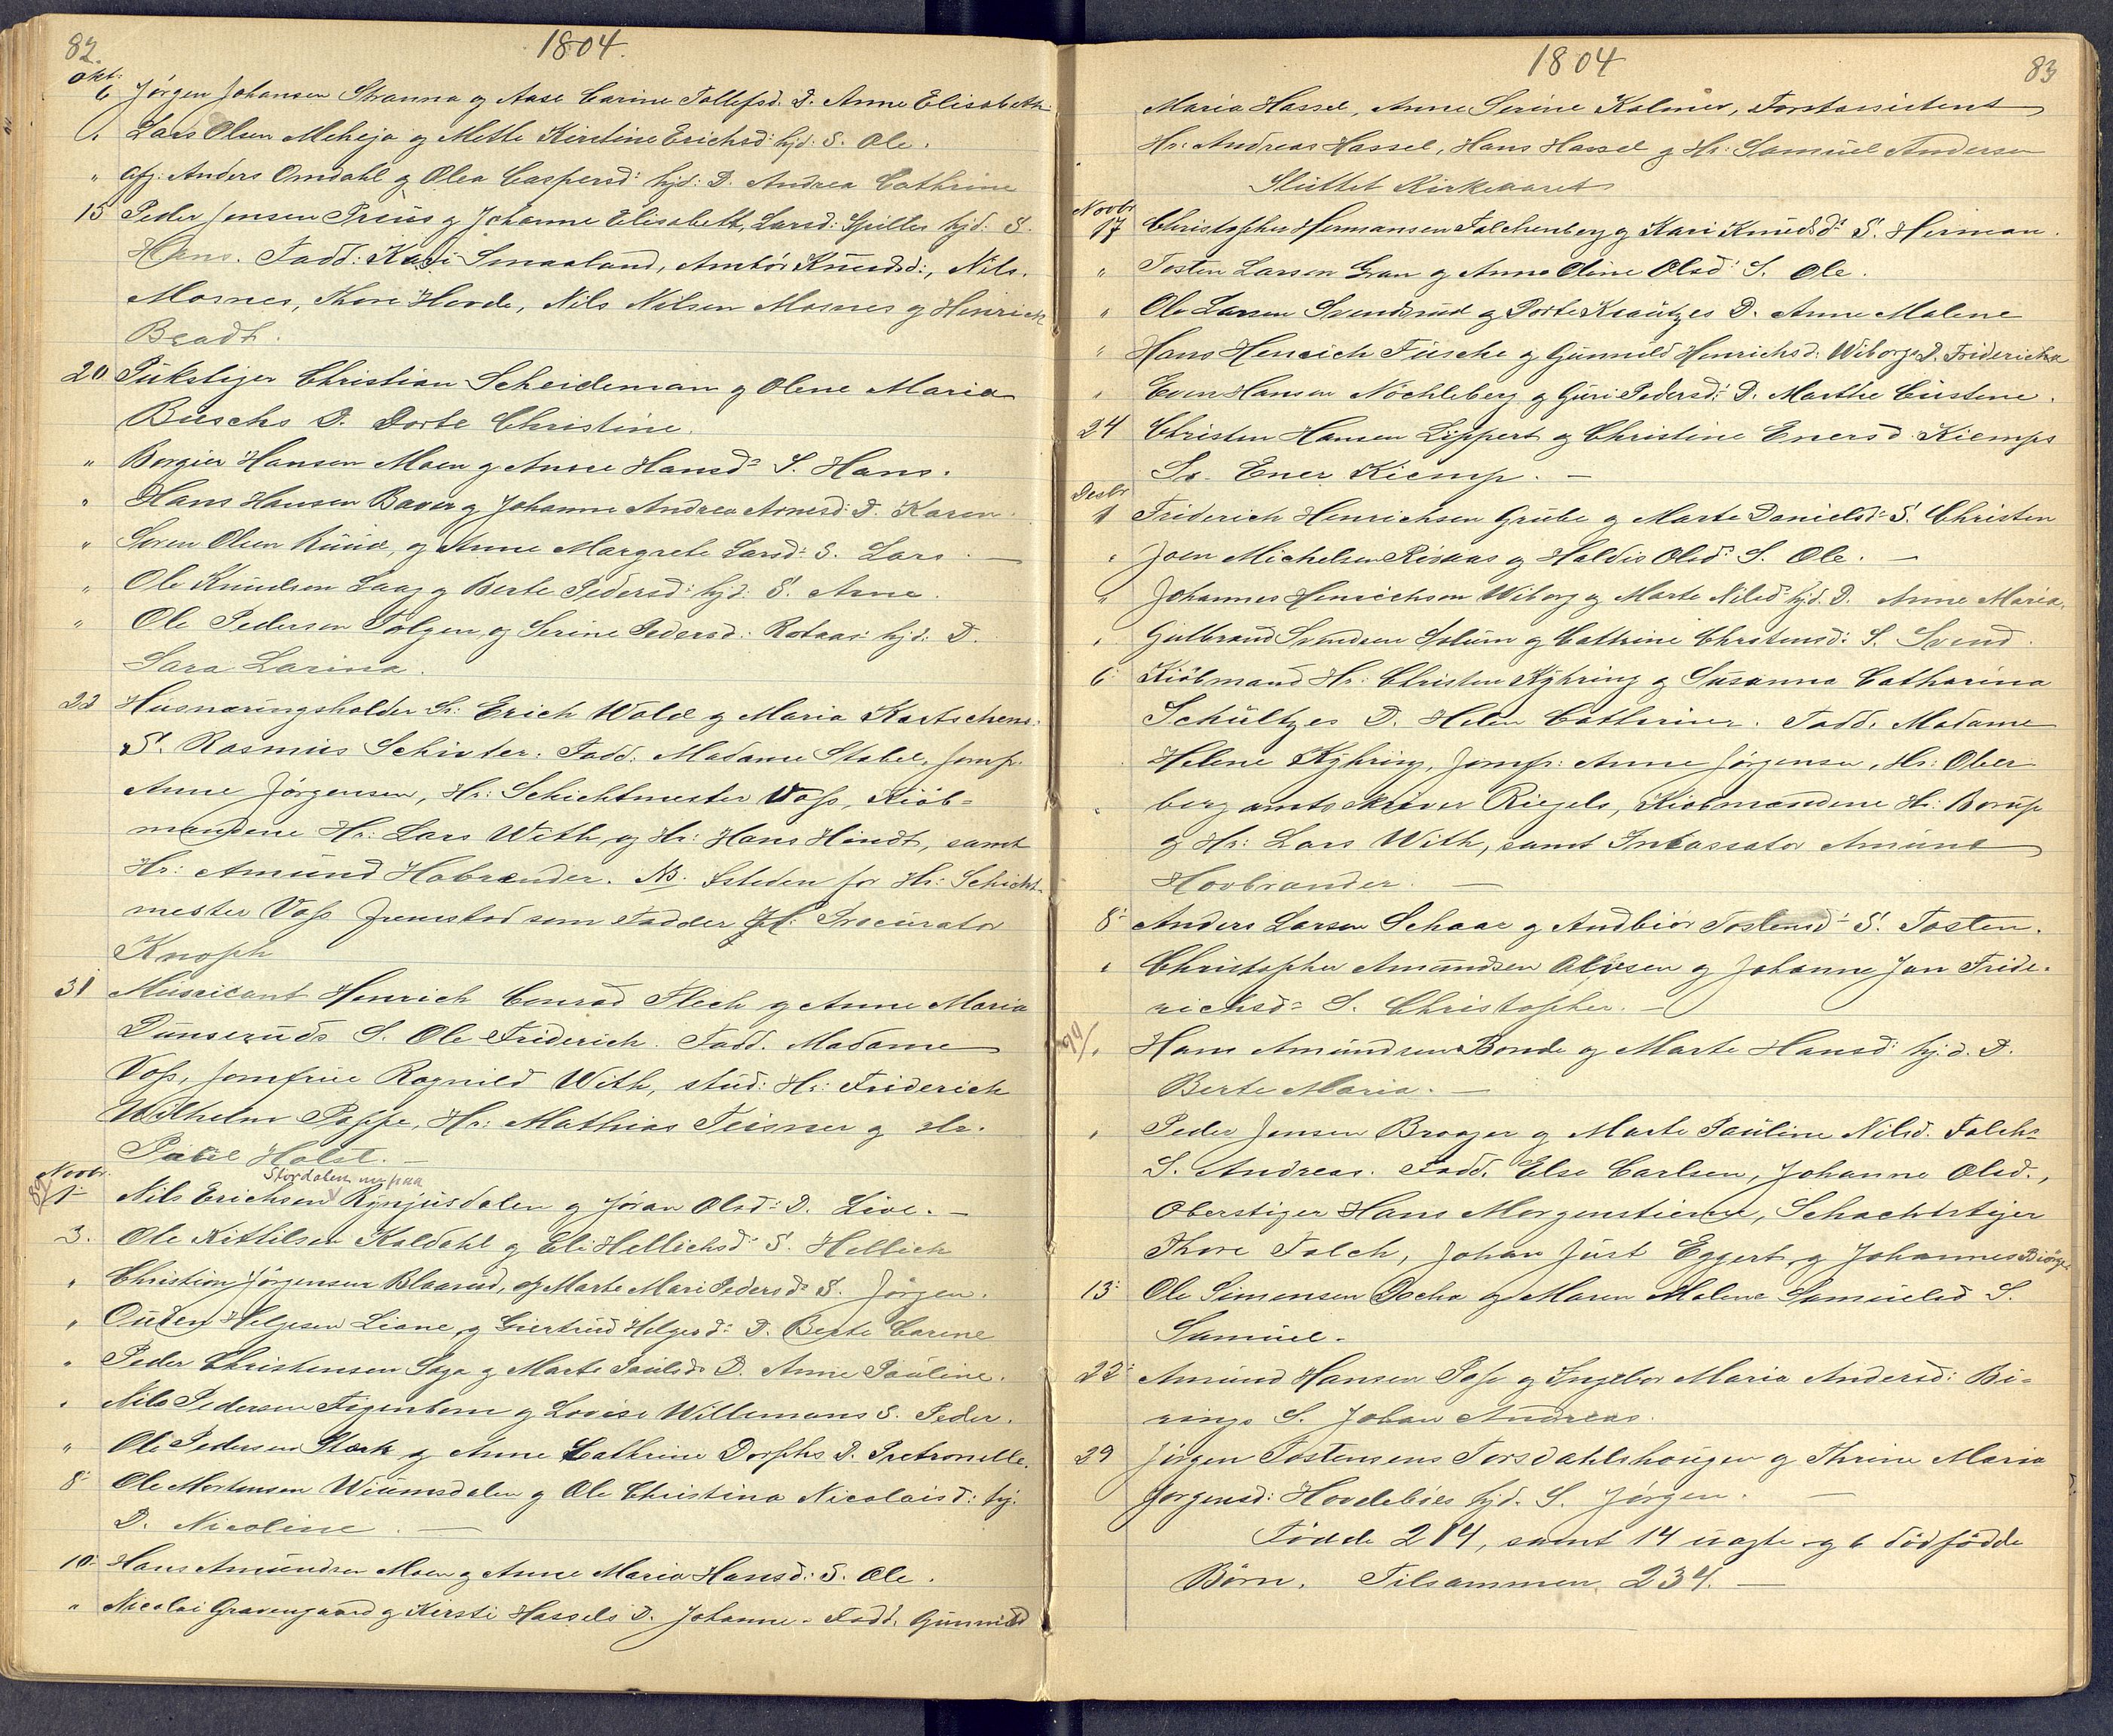 82.
1804.
Okt:
6 Jørgen Johansen Stranna og Aase Carine Tollefsd. D. Anne Elisabeth.
" Lars Olsen Meheja og Mette Kirstine Erichsd: hjd: S. Ole.
" afg: Anders Omdahl og Olea Caspersd: hjd: D. Andrea Cathrine
15 Peder Jensen Prius og Johanne Elisabeth, Larsd: Spilles hjd: S.
Hans. Fadd: Kari Smaaland, Ambør Knudsd:, Nils.
Mosnes, Thore Hovde, Nils Nilsen Mosnes og Hinrich
Bradt.
20 Pukstiger Christian Scheideman og Olene Maria
Buschs D. Dorte Christine.
" Borgier Hansen Moen og Anne Hansd: S. Hans.
" Hans Hansen Baver og Johanne Andrea Arnesd: D. Karen.
" Søren Olsen Ruud, og Anne Margrete Larsd: S. Lars. —
" Ole Knudsen Laag og Berte Pedersd: hjd: S. Arne.
" Ole Pedersen Tolgen, og Serine Pedersd: Rotaas: hjd: D.
Sara Larina.
22 Husnæringsholder Sr: Erich Wold og Maria Kartschens:
S. Rasmus Schivter: Fadd: Madame Stabel, Jomfr.
Anne Jørgensen, Hr: Schichtmester Voss, Kiøb-
mændene Hr: Lars With, og Hr: Hans Hindt, samt
Hr: Amund Habrander. NB. Isteden for Hr: Schicht-
mester Voss fremstod som Fadder Hr. Procurator
Knoph
31 Musicant Henrich Conrad Flech og Anne Maria
Dunseruds S. Ole Friderich. Fadd. Madame
Voss, Jomfrue Ragnild With, stud: Hr: Friderich
Wilhelm Poppe, Hr: Mathias Teisner og Hr.
Paul Holst. —
Novbr.
Stordalen nu paa
1- Nils Erichsen Rynjusdalen og Jøran Olsd: D. Live. —
3. Ole Kittilsen Koldahl og Eli Hellichsd: S. Hellich
" Christian Jørgensen Blaarud, og Marte Mari Pedersd: S. Jørgen.
" Ouden Helgesen Liane, og Giertrud Helgesd: D. Berte Carine
" Peder Christensen Saga og Marte Paulsd: D. Anne Pauline.
" Nils Pedersen Figenbom og Lovise Willemans S. Peder.
" Ole Pedersen Stork og Anne Cathrine Dorphs D. Petronelle.
8- Ole Mortensen Wiumsdalen og Ole Christina Nicolaisd: hj.
D. Nicoline. —
10- Hans Amundsen Moen og Anne Maria Hansd: S. Ole.
" Nicolai Gravengaard og Kirsti Hassels D. Johanne. Fadd: Gunnild
1804
83
Maria Hassel, Anne Serine Kolmer, Forstassistent
Hr: Andreas Hassel, Hans Hassel og Hr: Samuel Andersen
Sluttet Kirkeaaret
Novbr.
17 Christopher Hermansen Falchenberg og Kari Knudsd: S. Herman.
" Tosten Larsen Gran og Anne Oline Olsd: S. Ole.
" Ole Larsen Svendsrud og Dorte Krautzes D. Anne Malene
" Hans Henrich Fusche og Gunnild Henrichsd: Wiborgs D. Fridericha
" Even Hansen Nøchleberg og Guri Pedersd: D. Marthe Custine.
24 Christen Hansen Lippert og Christine Enersd. Kiemps
Sr. Ener Kiemp. —
Desbr
1 Friderich Henrichsen Grube og Marte Danielsd: S. Christen
" Joen Michelsen Risaas og Haldis Olsd: S. Ole. —
" Johannes Henrichsen Wiborg og Marte Nilsd: hjd. D. Anne Maria.
" Gulbrand Svendsen Solum og Cathrine Christensd: S. Svend.
6- Kiøbmand Hr: Christen Kyhring og Susanna Catharina
Schultzes D. Helen Cathrine. Fadd. Madame
Helene Kyhring, Jomfr: Anne Jørgensen, Hr: Ober-
bergamtsskriver Riegels, Kiøbmændene Hr: Borup
og Hr: Lars With, samt Incassator Amund
Hovbrander. —
8- Anders Larsen Schaar og Andbiør Tostensd: S. Tosten.
" Christopher Amundsen Alvsen og Johanne Jan Fride-
richsd: S. Christopher. —
" Hans Amundsen Bonde og Marte Hansd: hj.d. D.
Berte Maria. —
" Peder Jensen Braager og Marte Pauline Nilsd. Falchs
S. Andreas. Fadd. Else Carlsen, Johanne Olsd.,
Oberstiger Hans Morgenstierne, Schachtstiger
Thore Falch, Johan Just Eggert, og Johannes Biørge
13- Ole Simensen Docka og Maren Malene Samuelsd S.
Samuel.
22- Amund Hansen Pass og Ingebor Maria Andersd: Bi-
rings S. Johan Andreas.
29 Jørgen Tostensens Torsdahlshougen og Thrine Maria
Jørgensd: Hovdebøes hjd. S. Jørgen. —
Fødde 214, samt 14 uægte og 6 dødfødde
Børn. Tilsammen 234. —